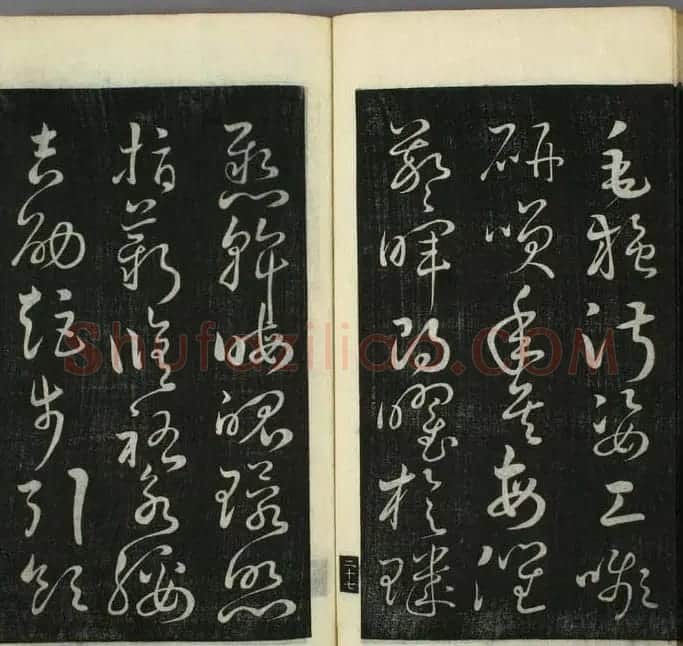 毛施淑姿工嚬
研咲年矢每催
羲暉朗曜旋璣
懸斡晦魄環照
指薪修祜永綏
吉劭矩步引領
二十七
Shufaziliao.COM